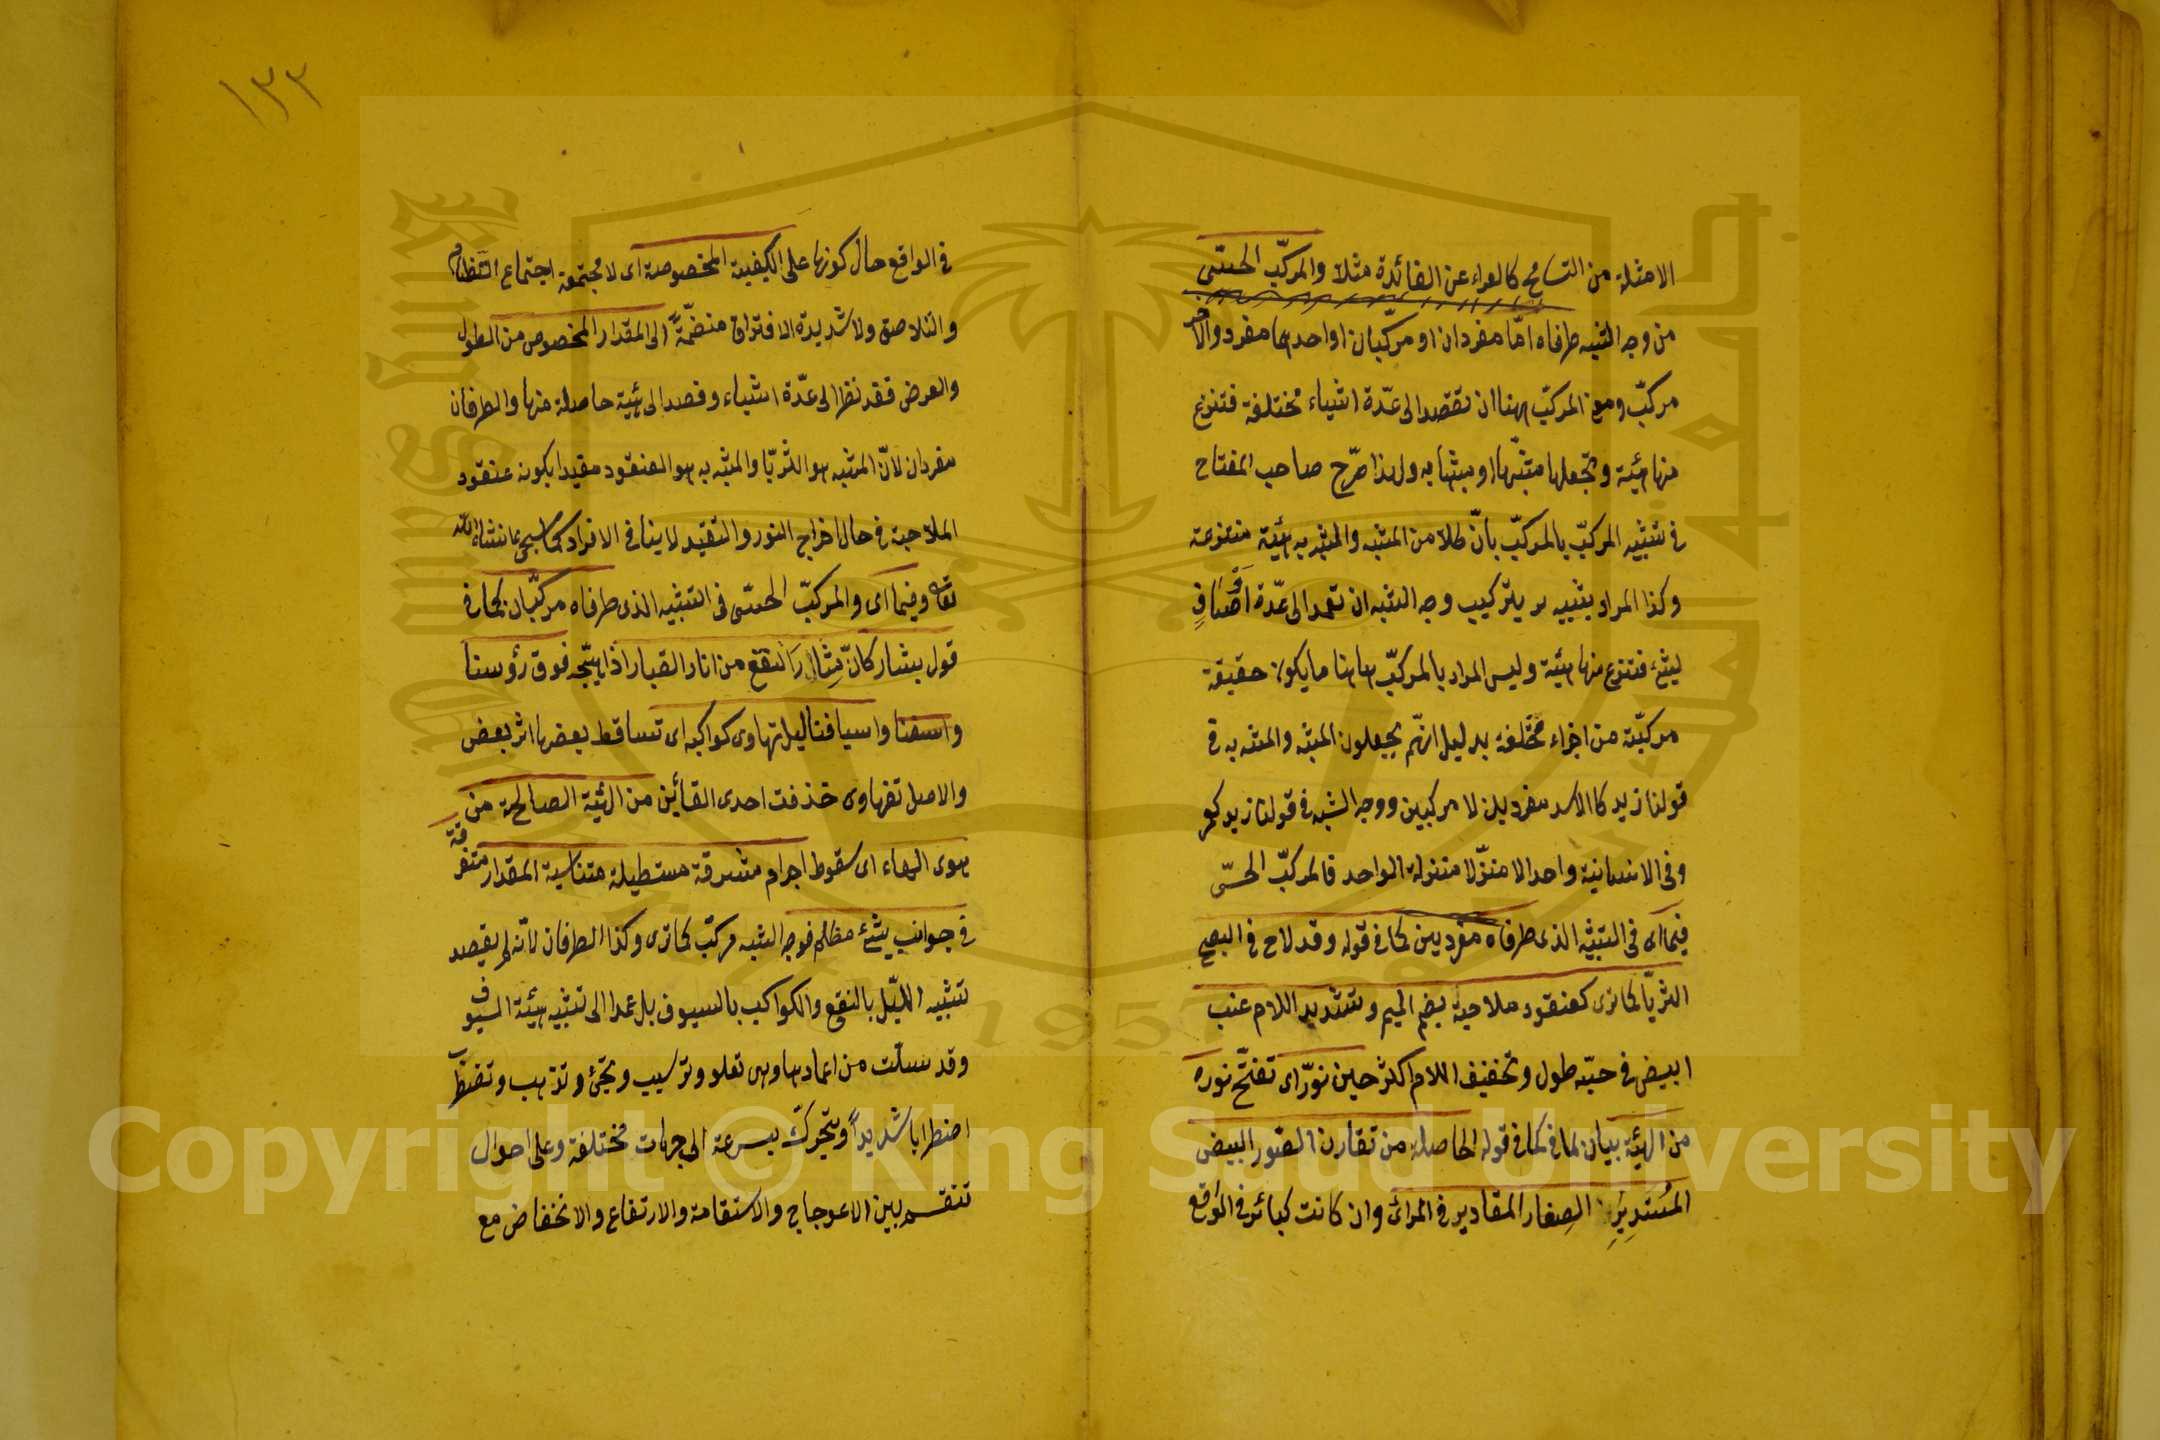 الامثلة من التسامح كالعراء عن الفائدة مثلا والمركب الحسى
من وجه الشبه طرفاه امّا مفردان او مركّبان او احدهما مفرد والآخر
مركّب ومعنى المركب ههنا ان تقصد الى عدّة اشياء مختلفة فتنزع
منها هيئة وتجعلها مشبّها او مشبها به ولهذا صرّح صاحب المفتاح
فى تشبيه المركّب بالمركّب بانّ كلا من المشبه والمشبه به هيئة منتزعة
وكذا المراد بتركيب وجه الشبه ان تعمد الى عدّة اوصاف
لشئ فتنتزع منها هيئة وليس المراد بالمركّب هاهنا ما يكون حقيقة
مركبّة من اجزاء مختلفة بدليل انهّم يجعلون المشبه والمشبه به فى
قولنا زيد كالاسد مفردين لا مركبين ووجه الشبه فى قولنا زيد كعمرو
فى الانسانية واحدا لا منزّلا منزلة الواحد فالمركّب الحسّى
فيما اى فى التشبيه الذى طرفاه مفردين كما فى قوله وقد لاح فى الصبح
الثريّا كما ترى كعنقود ملاحية بضم الميم وتشديد اللام عنب
ابيض فى حبّه طول وتخفيف اللام اكثر حين نوّرا اى تفتّح نوره
من الهيئة بيان لما فى كما فى قوله الحاصلة من تقارن الصور البيض
المُستديرِ الصغار المقادير فى المرائ وان كانت كبائر فى الواقع
١٣٣
فى الواقع حال كونها على الكيفية المخصوصة اى لا مجتمعة اجتماع التضام
والتلاصق ولا شديدة الافتراق منضمّةً الى المقدار المخصوص من الطول
والعرض فقد نظر الى عدّة اشياء وقصد الى هيئة حاصلة منها والطرفان
مفردان لانّ المشبه هو الثريّا والمشبه به هو العنقود مقيدا بكونه عنقود
الملاحية فى حال اخراج النور والتقيد لا ينافى الافراد كما سيجئ انشاء الله
تعا وفيما اى والمركبّ الحسّى فى التشبيه الذى طرفاه مركبّان كما فى
قول بشار كانّ مثار النقع من اثار الغبار اذا هيّجه فوق رؤسنا
واسفنا واسيافنا ليل تهاوى كواكبه اى تتساقط بعضها اثر بعض
والاصل تتهاوى حذفت احدى التائين من الهيئة الحاصلة من
هوى الهاء اى سقوط اجرام مشرقة مستطيلة متناسبة المقدار متفرقة
فى جوانب شئ مظلم فوجه الشبه مركّب كما ترى وكذا الطرفان لانّه لم يقصد
تشبيه اللّيل بالنقع والكواكب بالسيوف بل عمد الى تشبيه هيئة السيوف
وقد سلّت من اغمادها وهى تعلو وترسب وتجئ وتذهب وتضطرب
اضطرابا شديداً وتتحرّك بسرعة الى جهات مختلفة وعلى احوال
تنقسم بين الاعوجاج والاستقامة والارتفاع والانخفاض مع
Copyright © King Saud University
King Saud University
جامعة الملك سعود
1957